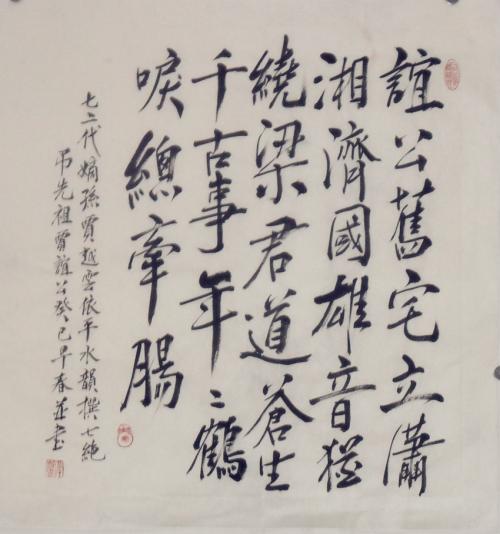 誼公舊宅立瀟
湘濟國雄音猶
繞梁君道蒼生
千古事年〻鶴
唳總牽腸
七二代嫡孫賈越雲依平水韻撰七絕
弔先祖賈誼公癸巳早春並書